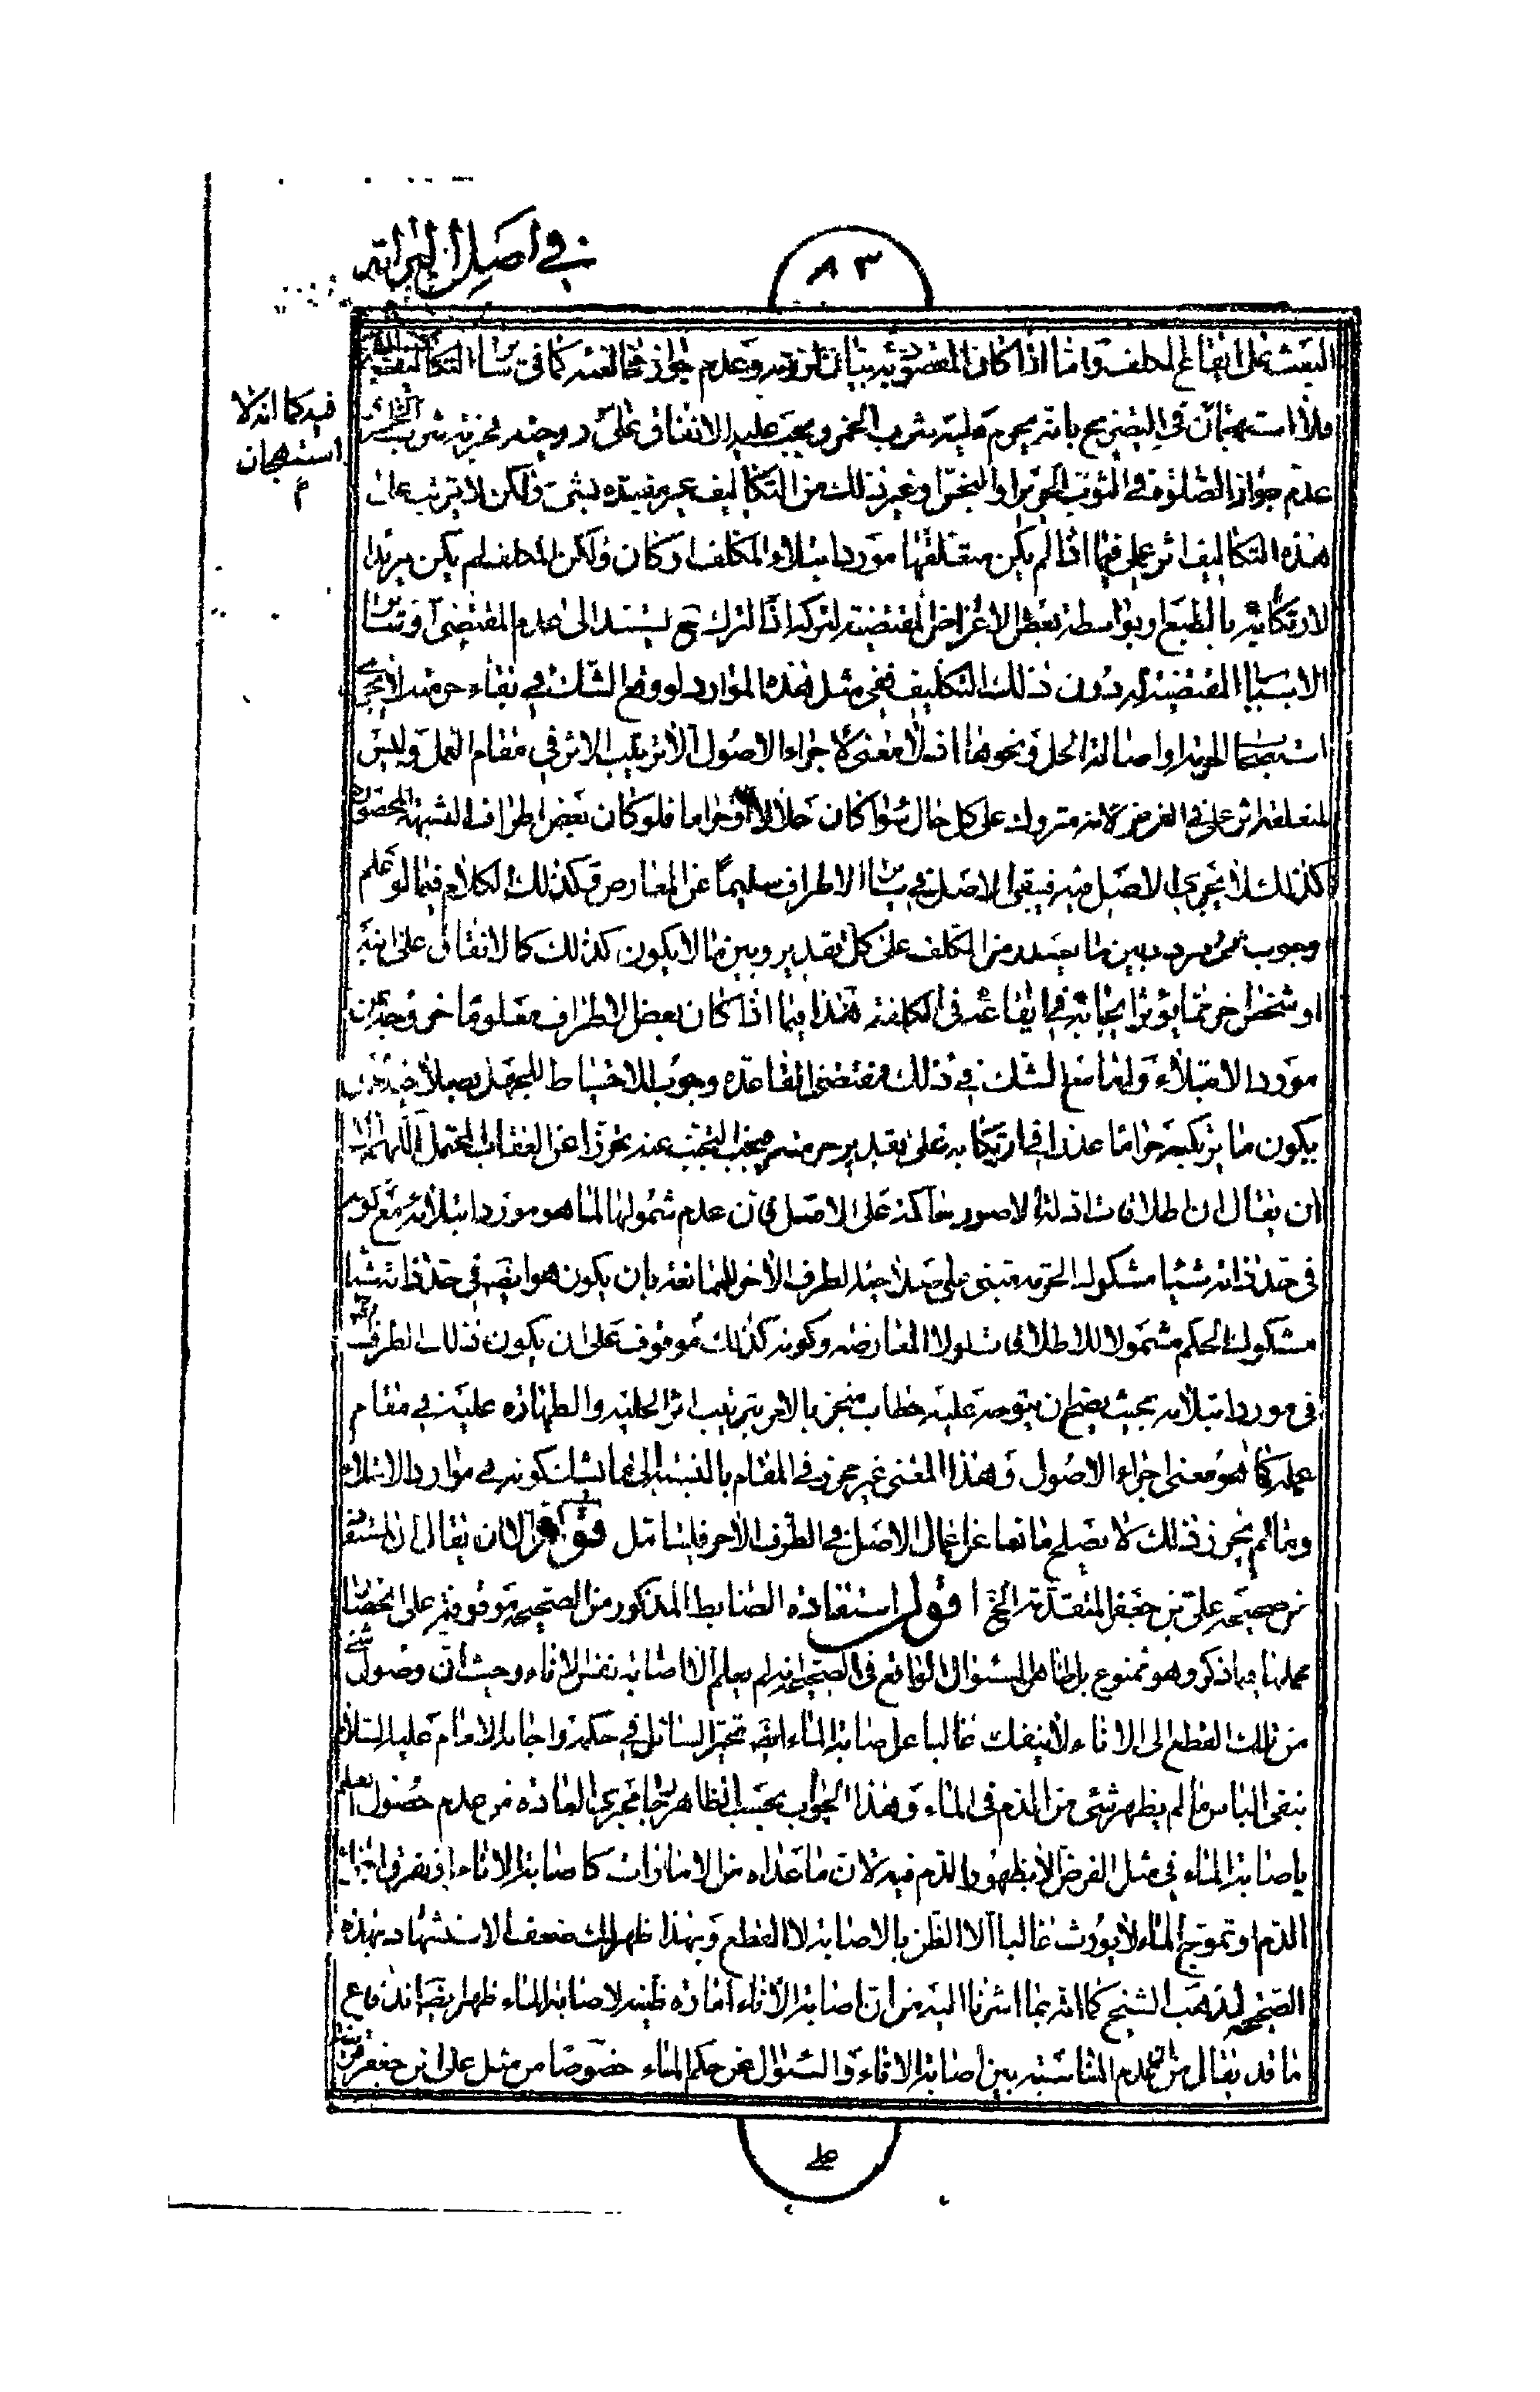 في اصل البرائة
٨٣
البعث على ايقاع المكلف واما اذا كان المقصود به بيان لزومه وعدم جواز مخالفته كما في سائر التكاليف
فلا استهجان في التصريح بانه يحرم عليه شرب الخمر ويجب عليه الانفاق على زوجته حرمة شرب الخمر
فيه كما انه لا
استهجان
م
عدم جواز الصلوة في الثوب الحرير او النجس وغير ذلك من التكاليف غير مقيدة بشئ ولكن لا يترتب على
هذه التكاليف اثر عملي فيما اذا لم يكن متعلقها مورد ابتلاء المكلف او كان ولكن المكلف لم يكن مريدا
لارتكابه بالطبع او بواسطة بعض الاغراض المقتضية لتركه اذ الترك ح يستند الى عدم المقتضى او سائر
الاسباب المقتضية له دون ذلك التكليف ففي مثل هذه الموارد لو وقع الشك في بقاء حرمته لا يجرى
استصحابا لحرمة او اصالة الحل ونحوها اذ لا معنى لاجراء الاصول الا ترتيب الاثر في مقام العمل وليس
لمتعلقه اثر عملي في الفرض لانه متروك على كل حال سواء كان حلالا او حراما فلو كان بعض اطراف الشبهة المحصورة
كذلك لا يجرى الاصل فيه فيبقى الاصل في سائر الاطراف سليما عن المعارض وكذلك الكلام فيما لو علم
وجوب شئ مردد بين ما يصدر من المكلف على كل تقدير وبين ما لا يكون كذلك كالانفاق على ابنه
او شخص اخر مما يؤثر ايجابه في ايقاعه في الكلفة هذا فيما اذا كان بعض الاطراف معلوما خروجه عن
مورد الابتلاء واما مع الشك في ذلك فمقتضى القاعدة وجوب الاحتياط للجهل بصلاحية
يكون ما يرتكبه حراما عذرا في ارتكابه على تقدير حرمته فيجب التجنب عنه تحرزا عن العقاب المحتمل اللهم الا
ان يقال ان اطلاقات ادلة الاصول حاكمة على الاصل فان عدم شمولها لما هو مورد ابتلائه مع كونه
في حد ذاته شيئا مشكوك الحرمة مبنى على صلاحية الطرف الاخر للممانعة بان يكون هو ايضه في حد ذاته شيئا
مشكوك الحكم مشمولا للاطلاقات لولا المعارضة وكونه كذلك موقوف على ان يكون ذلك الطرف
في مورد ابتلائه بحيث يصح ان يتوجه عليه خطاب منجز بالامر بترتيب اثر الحلية والطهارة عليه في مقام
عمله كما هو معنى اجراء الاصول وهذا المعنى غير محرز في المقام بالنسبة الى ما يشك كونه في موارد الابتلاء
وما لم يحرز ذلك لا يصلح مانعا عن اعمال الاصل في الطرف الاخر فليتامل قوله الا ان يقال ان المستفاد
من صحيحة علي بن جعفر المتقدمة الخ اقول استفادة الضابط المذكور من الصحيحة موقوفة على انحصار
محملها بما ذكر وهو ممنوع بل ظاهر السئوال الواقع في الصحيحة انه لم يعلم الا اصابة نفس الاناء وحيث ان وصول شئ
من تلك القطع الى الاناء لا ينفك غالبا عن اصابة الماء ايضه تحير السائل في حكمه واجابه الامام عليه السلام
بنفى الباس ما لم يظهر شئ من الدم في الماء وهذا الجواب بحسب الظاهر جار مجرى العادة من عدم حصول العلم
باصابة الماء في مثل الفرض الا بظهور الدم فيه لان ما عداه من الامارات كاصابة الاناء او تفرق اجزاء
الدم او تموج الماء لا يورث غالبا الا الظن بالاصابة لا القطع وبهذا ظهر لك ضعف الاستشهاد بهذه
الصحيحة لمذهب الشيخ كما انه بما اشرنا اليه من ان اصابة الاناء امارة ظنية لاصابة الماء ظهر ايضا اندفاع
ما قد يقال من عدم المناسبة بين اصابة الاناء والسئوال عن حكم الماء خصوصا من مثل علي بن جعفر
على